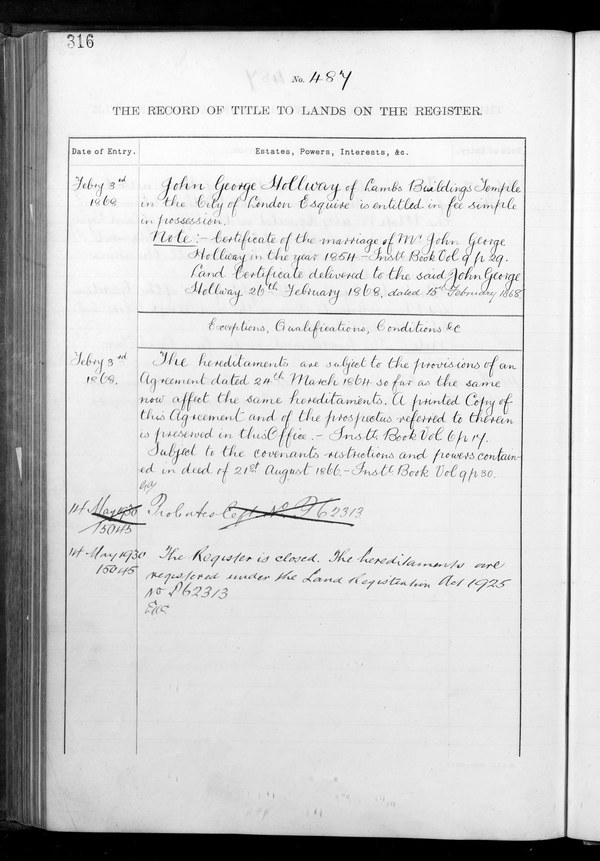 316
No. 487
THE RECORD OF TITLE TO LANDS ON THE REGISTER.
Date of Entry.
Estates, Powers, Interests, &c.
Febry 3rd
1868
John George Hollway of Lambs Buildings Temple
in the City of London Esquire is entitled in fee simple
in possession.
Note:- Certificate of the marriage of Mr John George
Hollway in the year 1854 - Instt. Book Vol 9 p 29.
Land Certificate delivered to the said John George
Hollway 26th February 1868, dated 15th February 1868
Exceptions, Qualifications, Conditions &c
Febry 3rd
1868.
The hereditaments are subject to the provisions of an
Agreement dated 24th March 1864 so far as the same
now affect the same hereditaments. A printed Copy of
this Agreement and of the prospectus referred to therein
is preserved in this Office. - Instt. Book Vol 6 p 17.
Subject to the covenants restrictions and powers contain-
ed in deed of 21st August 1866. - Instt. Book Vol 9 p 30.
14 May 1930
15045
No P62313
14 May 1930
15045
The Register is closed. The hereditaments are
registered under the Land Registration Act 1925
No P62313